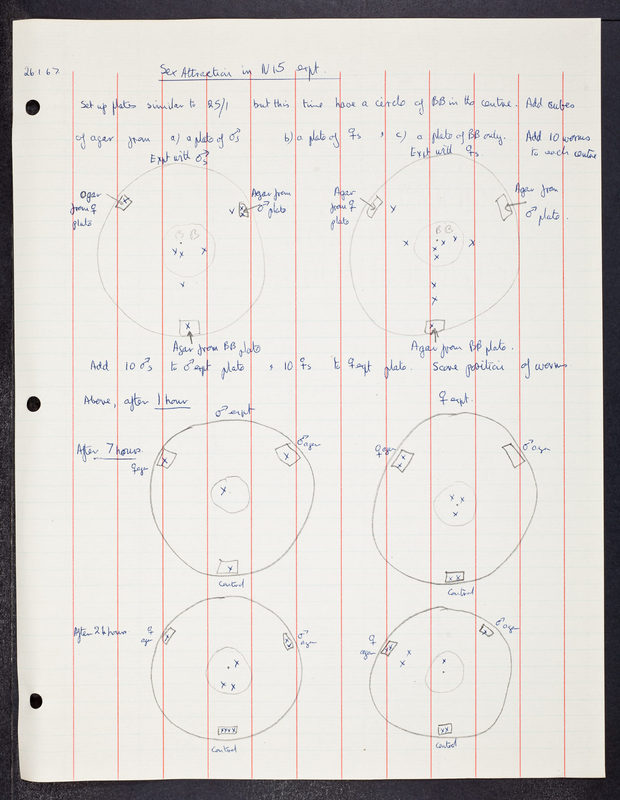 26.1.67.
Sex Attraction in N15 expt.
Set up plates similar to 25/1 but this time have a circle of BB in the centre. Add cubes
of agar from a) a plate of ♂s b) a plate of ♀s, c) a plate of BB only. Add 10 worms
to each centre
Expt with ♂s
Expt with ♀s.
Agar
from ♀
plate
Agar from
♂ plate
Agar
from ♀
plate
Agar from
♂ plate.
BB
BB
Agar from BB plate
Agar from BB plate.
Add 10 ♂s to ♂ expt plate, 10 ♀s to ♀ expt plate. Score position of worms
Above, after 1 hour
♂ expt
♀ expt.
After 7 hours
♀ agar
♂ agar
♀ agar
♂ agar
Control
Control
After 26 hours
♀
agar
♂
agar
♀
agar
♂ agar
Control
Control